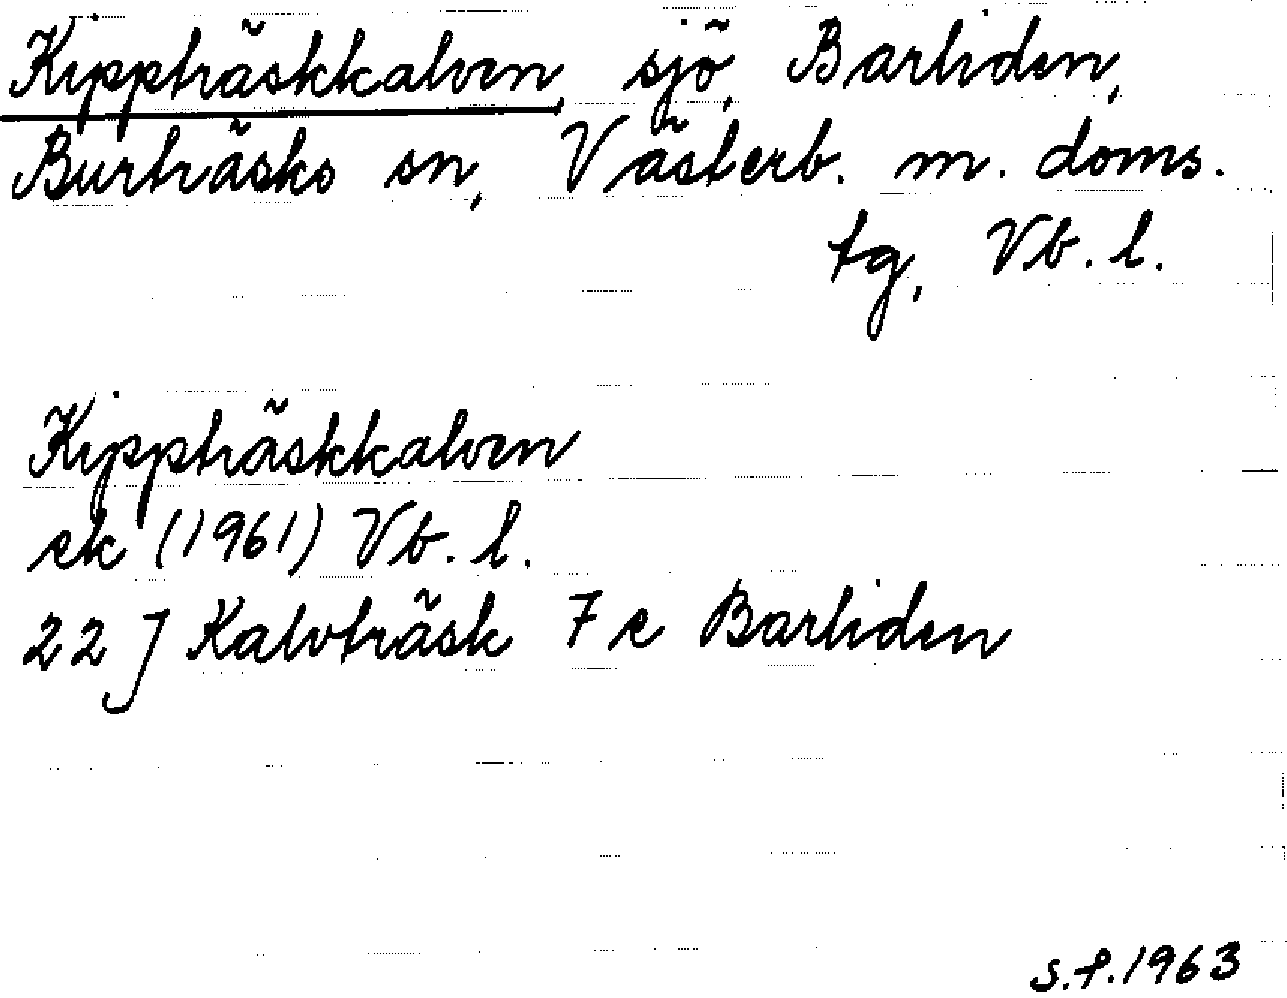 Kippträskkalven, sjö, Barliden,
Burträsks sn, Västerb. m. doms.
tg, Vb. l.
Kippträskkalven
ek (1961) Vb. l.
22 J Kalvträsk 7 e Barliden
s.f. 1963